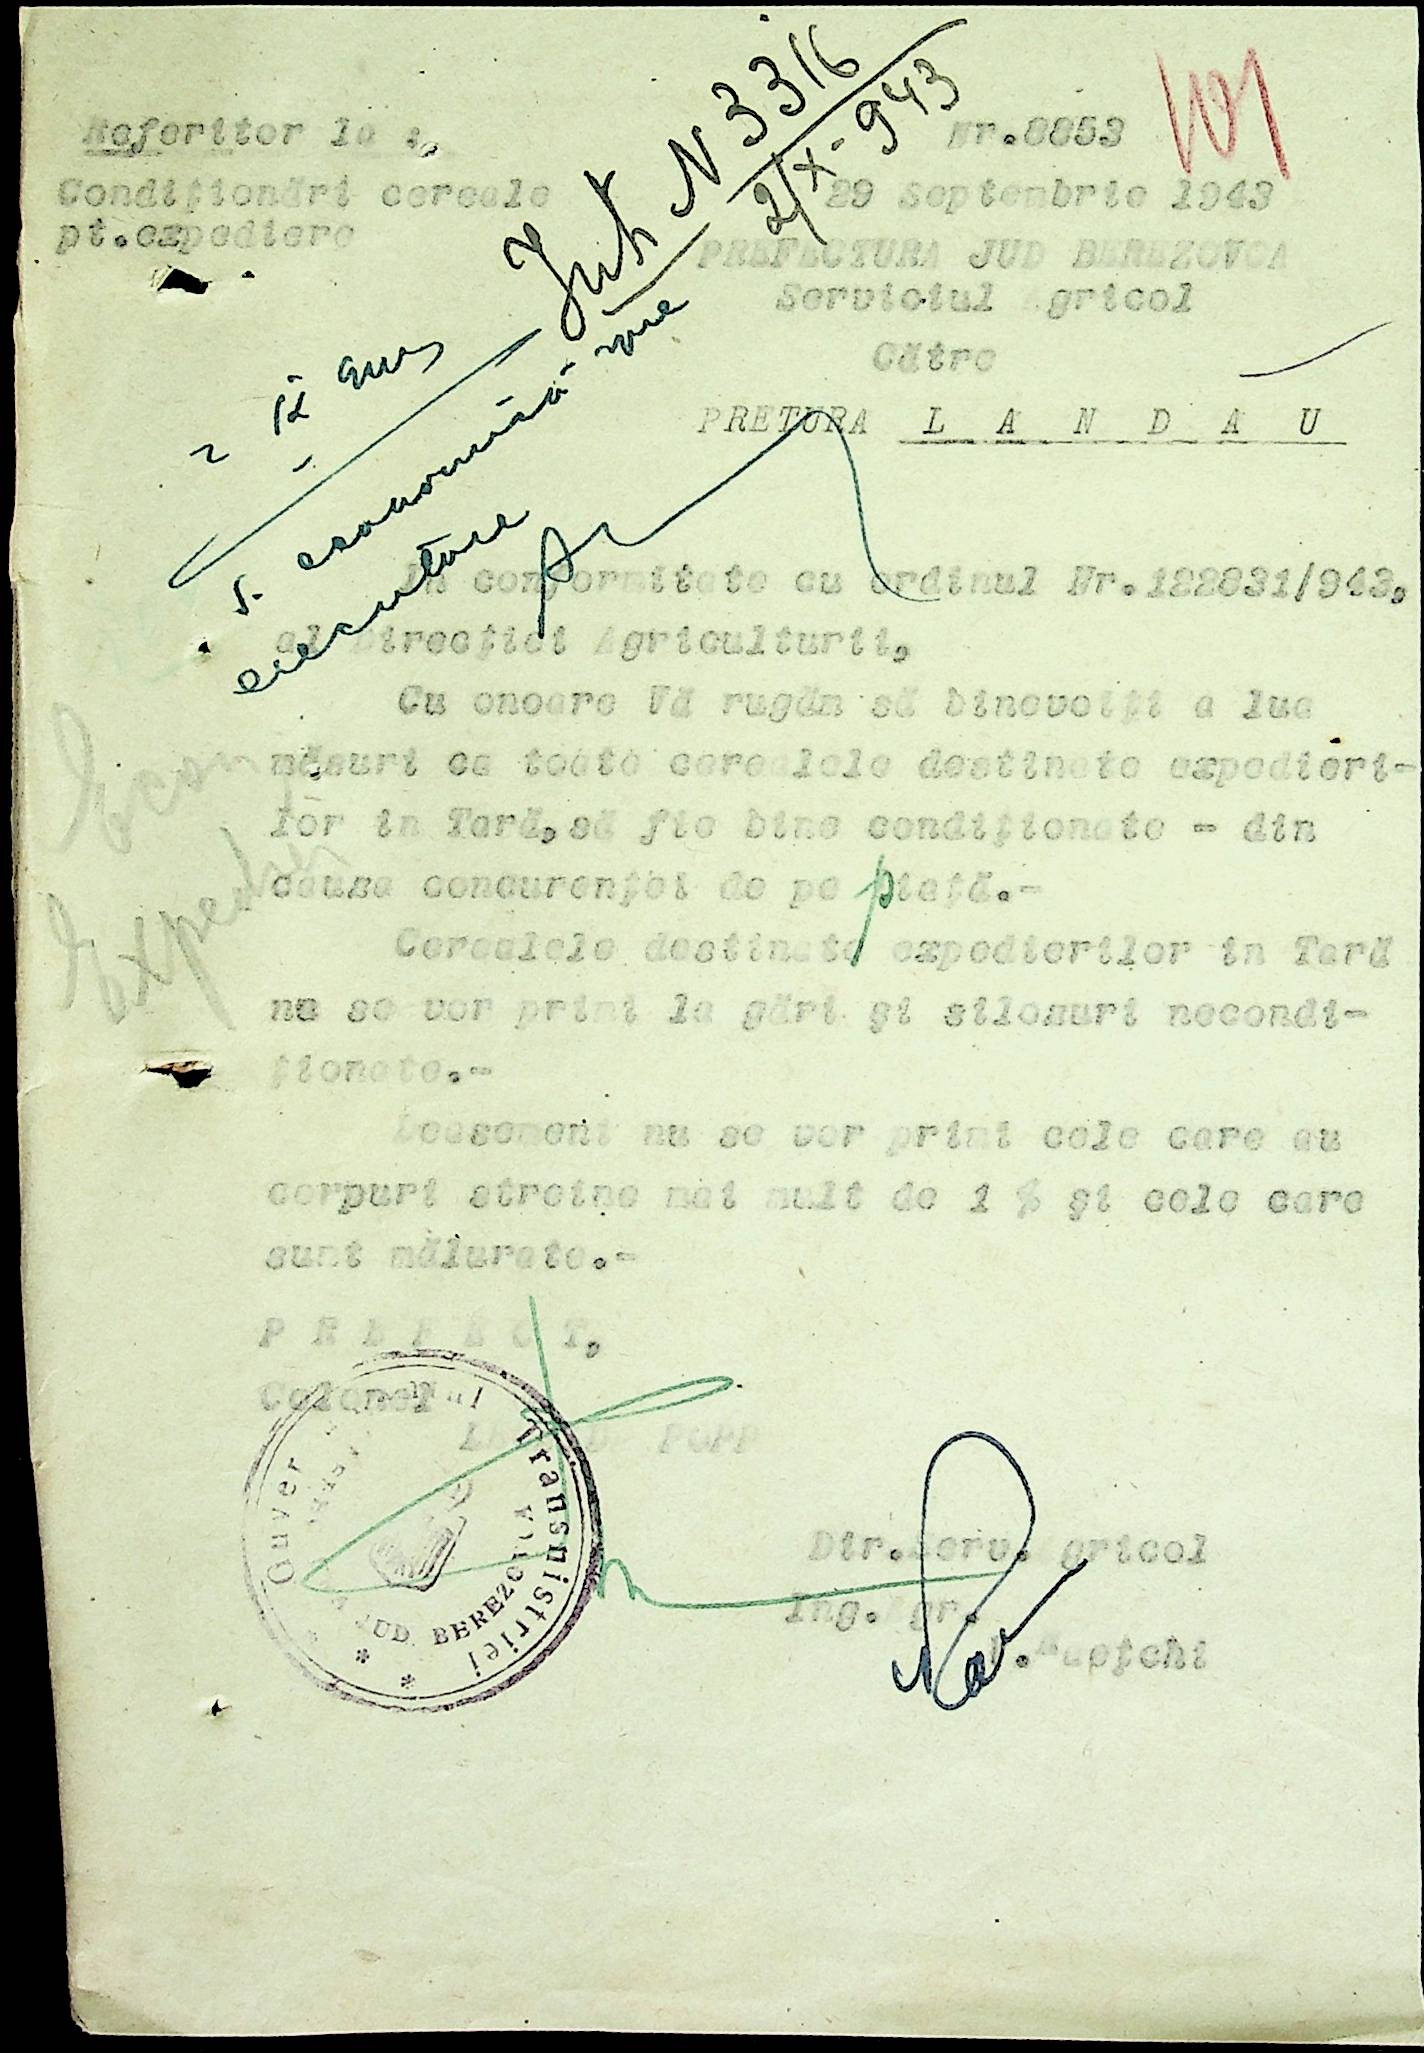 101
Int. N 3316
2/X-943
Referitor la :,
Condiţionări cereale
pt.expediere
Nr.8853
29 Septembrie 1943
PREFECTURA JUD BEREZOVCA
Serviciul Agricol
Către
PRETURA L A N D A U
s. economică
executare
In conformitate cu ordinul Nr.122831/943,
al Direcţiei Agriculturii,
Cu onoare Vă rugăm să binevoiţi a lua
măsuri ca toate cerealele destinate expedieri-
lor in Tară, să fie bine condiţionate - din
cauza concurenţei de pe piaţă.-
Cerealele destinate expedierilor in Tară
nu se vor primi la gări şi silozuri necondi-
ţionate.-
Deasemeni nu se vor primi cele care au
corpuri streine mai mult de 1 % şi cele care
sunt mălurate.-
Econ
P R E F E C T,
Colonel
POPP
Guver Transnistriei
JUD. BEREZOVCA
Dir.Serv. Agricol
Ing.Agr.